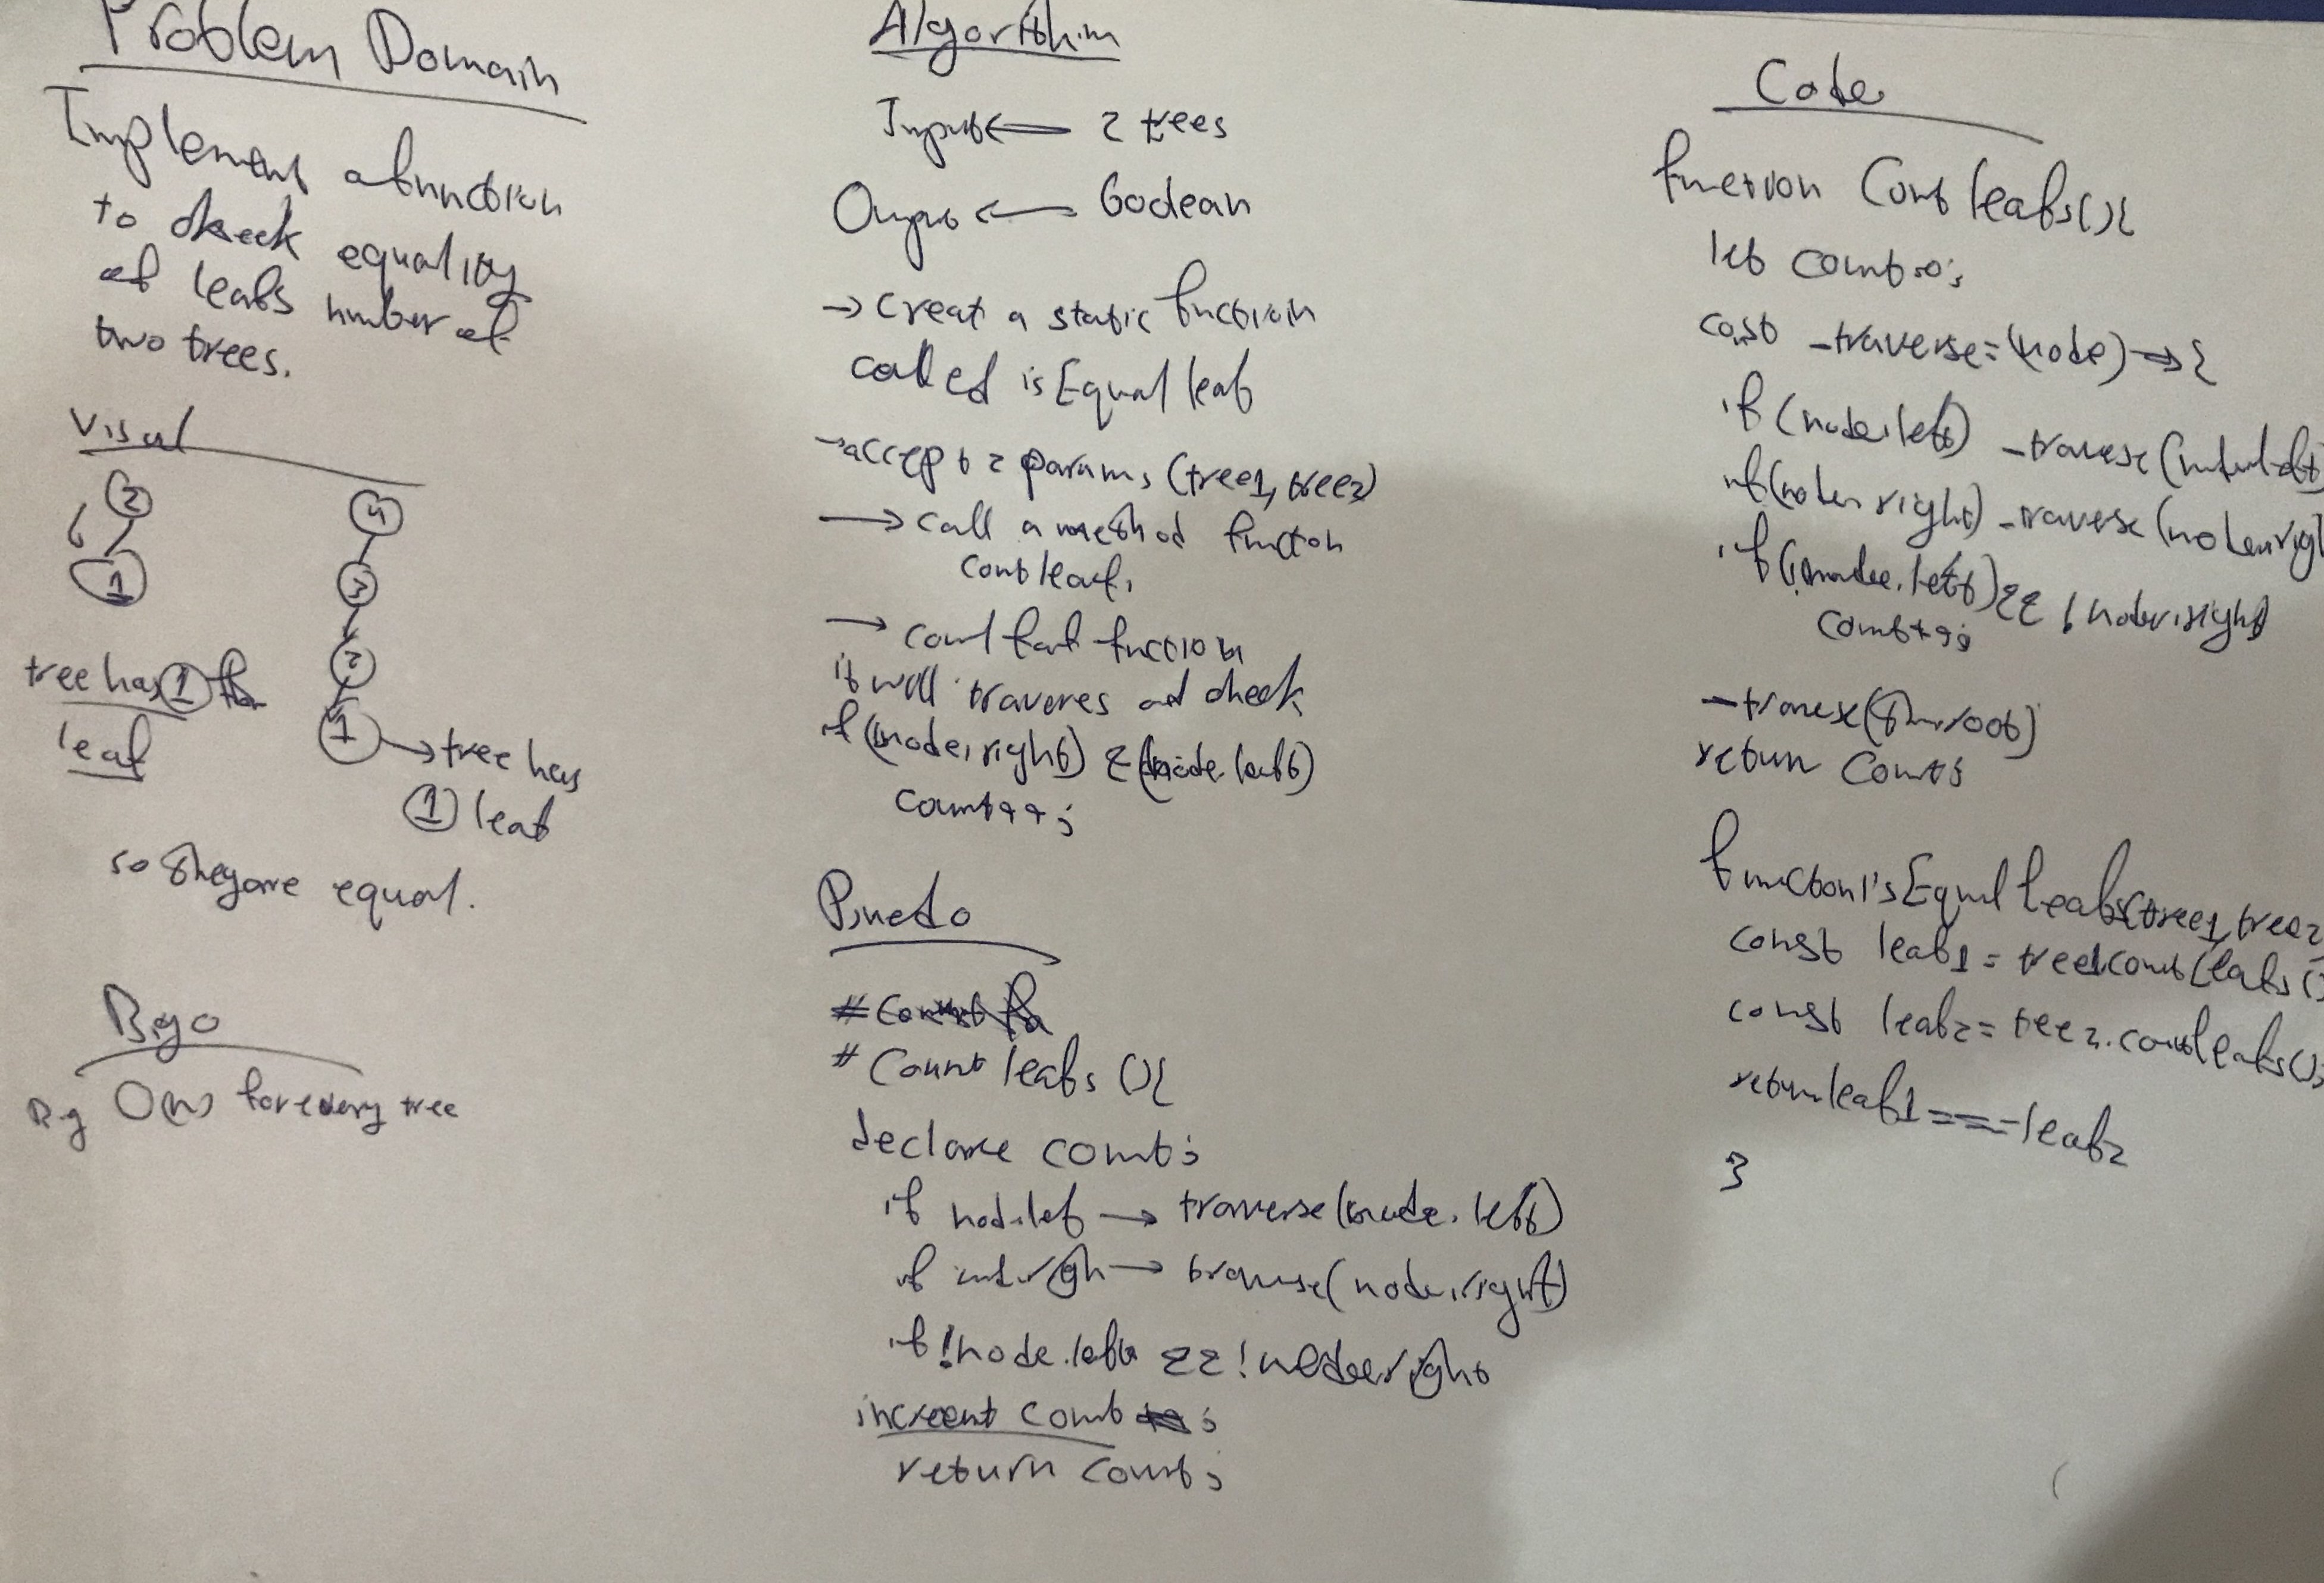 Problem Domain
Implement a function
to check equality
of leafs number of
two trees.
Visual
2
1
tree has 1
leaf
4
3
2
1 → tree has
1 leaf
so they are equal.
Big o
Big O(n) for every tree
Algorithim
Input ← 2 trees
Ouput ← boolean
→ creat a static function
called isEqual leaf
→ accept 2 params (tree1, tree2)
→ call a method function
count leafs
→ count leaf fuction
it will traveres and check
if (!node.right) & (!node.left)
count++;
Psuedo
# Count leafs (){
declare count;
if node.left → traverse(node.left)
if node.righ → traverse(node.right)
if !node.left && !node.right
increent count ;
return count;
Code
function Count leafs(){
let count=0;
const _traverse=(node)=>{
if (node.left) _traverse(node.left
if(node.right) _traverse(node.righ
if(!node.left) && !node.right
count++;
_traverse(this.root)
return count;
function isEqual Leafs(tree1, tree2
const leaf1 = tree1.countLeafs()
const leaf2 = tree2.countleafs();
return leaf1 === leaf2
}